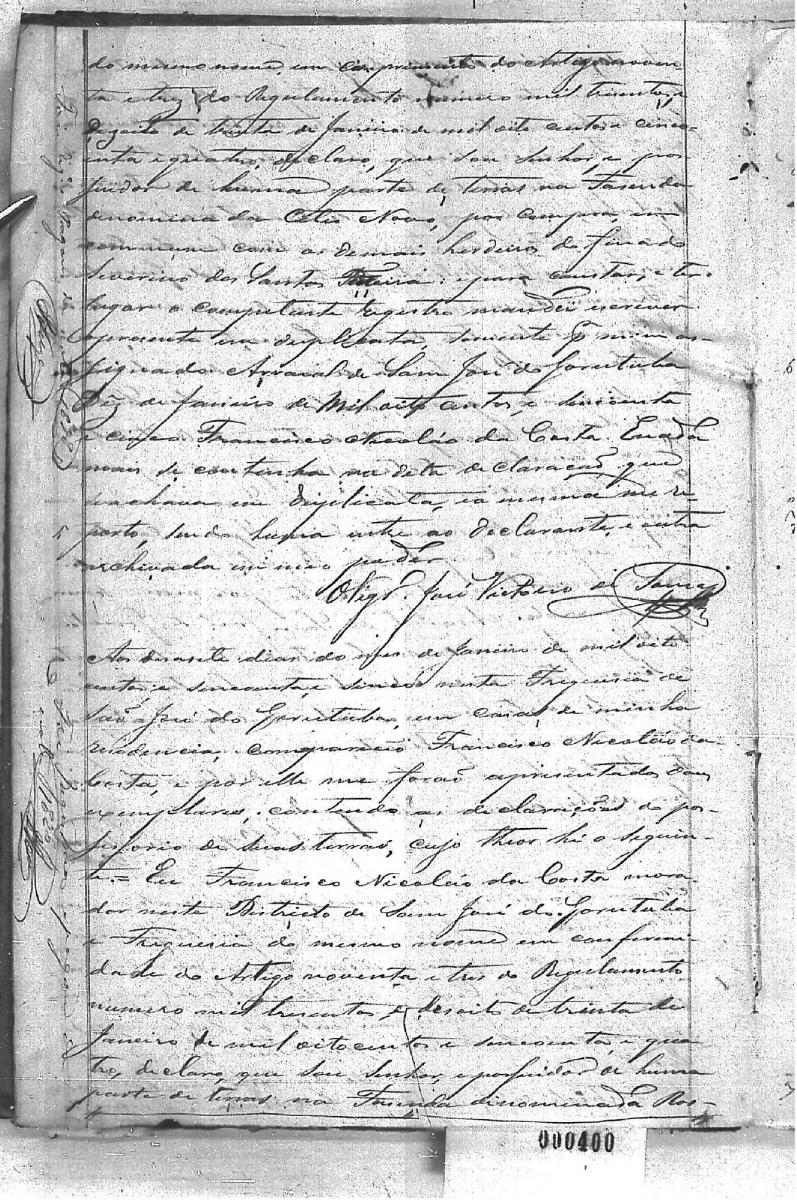 do mesmo nome, em comprimento do Artigo noven-
ta e trez do Regulamento numero mil trezentos, e
dezoito de trinta de Janeiro de mil oito centos e cinco-
enta e quatro, declaro, que sou Senhor, e pos-
suidor de huma parte de terras na Fasenda
denomina da Citio Novo, por compra, em
commum com os demais herdeiros do finado
Severino dos Santos : e para constar, e ter
lugar o competente registro mandei escrever
o presente em duplicata, somente por mim as-
signado Arraial de Sam José do Gorutuba
Dez de Janeiro de Mil oito centos e sincoenta
e cinco Francisco Nicoláo da Costa. E nada
mais se continha na dita declaração, que
se achava em duplicata, e a mesma me re
porto, sendo huma entre ao declarante, e outra
archivada em meu poder
O Vigr.º José Victorio de Souza
Aos dezasete dias do mes de Janeiro de mil oito
centos e sincoenta, e sinco nesta Freguesia de
São José do Gorutuba em casa de minha
residencia, compareceo Francisco Nicoláo da
Costa, e por elle me forão apresentados dous
exemplares, contendo as declarações do pos-
sisorio de suas terras, cujo theor hé o seguin-
te = Eu Francisco Nicoláo da Costa mora-
dor neste Districto de Sam José do Gorutuba
e Freguesia do mesmo nome em conformi-
dade do Artigo noventa e tres do Regulamento
numero mil tresentos e desoito de trinta de
Janeiro de mil oitocentos e sincoenta, e qua-
tro, declaro, que sou Senhor, e possuidor de huma
parte de terras na Fasenda denominada Ros-
000400